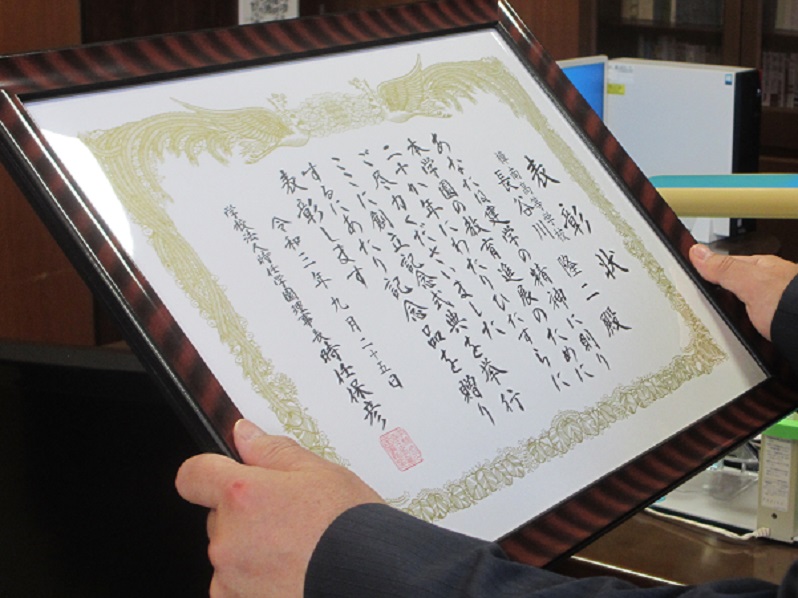 表彰状
樟南高等学校
長谷川隆二殿
あなたは建学の精神に則り
本学園の教育進展のために
二十か年にわたりひたすらに
ご尽力くださいました
ここに創立記念式典を挙行
するにあたり記念品を贈り
表彰します
令和三年九月二十五日
学校法人時任学園理事長時任保彦